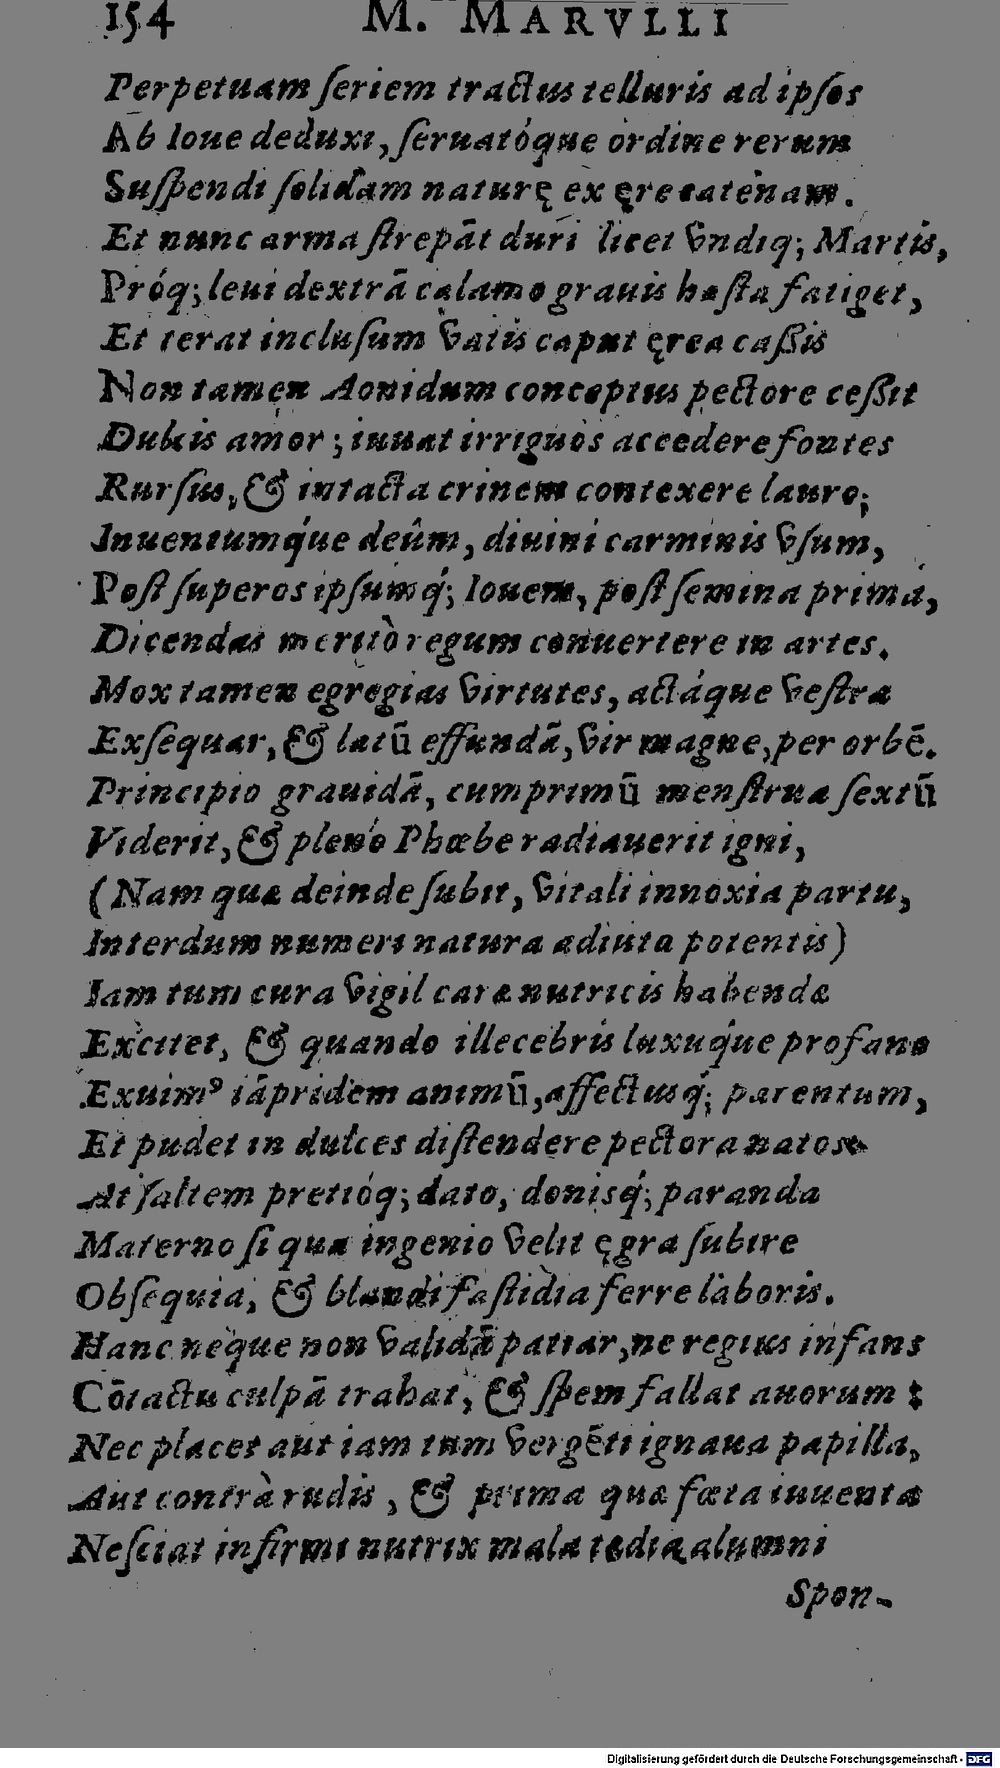 154 M. MARVLLI
Perpetuam ſeriem tractus telluris ad ipſos
Ab Ioue deduxi, ſeruatóque ordine rerum
Suſpendi ſolidam naturę ex ęre catenam.
Et nunc arma ſtrepāt duri licet vndiq; Martis,
Próq; leui dextrā calamo grauis haſta fatiget,
Et terat incluſum vatis caput ęrea caßis
Non tamen Aonidum conceptus pectore ceßit
Dulcis amor; iuuat irriguos accedere fontes
Rurſus, & intacta crinem contexere lauro;
Inuentumq́ue deûm, diuini carminis vſum,
Poſt ſuperos ipſumq́; Iouem, poſt ſemina prima,
Dicendas meritò regum conuertere in artes.
Mox tamen egregias virtutes, actáque veſtra
Exſequar, & latū effundā, vir magne, per orbē.
Principio grauidā, cumprimū menſtrua ſextū
Viderit, & pleno Phœbe radiauerit igni,
(Nam quæ deinde ſubit, vitali innoxia partu,
Interdum numeri natura adiuta potentis)
Iam tum cura vigil caræ nutricis habendæ
Excitet, & quando illecebris luxuq́ue profano
Exuimꝰ iāpridem animū, affectusq́; parentum,
Et pudet in dulces diſtendere pectora natos.
At ſaltem pretióq; dato, donisq́; paranda
Materno ſi qua ingenio velit ęgra ſubire
Obſequia, & blandi faſtidia ferre laboris.
Hanc neque non validā patiar, ne regius infans
Cōtactu culpā trahat, & ſpem fallat auorum:
Nec placet aut iam tum vergēti ignaua papilla,
Aut contrà rudis, & prima quæ fœta iuuenta
Neſciat infirmi nutrix mala tędia alumni
Spon-
Digitalisierung gefördert durch die Deutsche Forschungsgemeinschaft - DFG